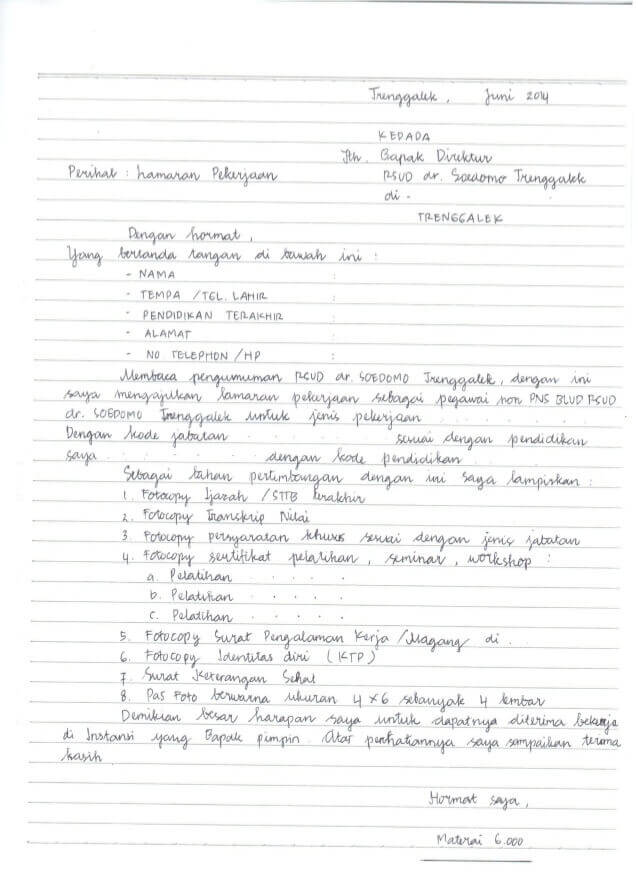 Trenggalek, Juni 2014
KEPADA
Yth. Bapak Direktur
Perihal : Lamaran Pekerjaan RSUD dr. Soedomo Trenggalek
di -
TRENGGALEK
Dengan hormat,
Yang bertanda tangan di bawah ini :
- NAMA :
- TEMPA /TGL. LAHIR :
- PENDIDIKAN TERAKHIR :
- ALAMAT :
- NO TELEPHON /HP :
Membaca pengumuman RSUD dr. SOEDOMO Trenggalek, dengan ini
saya mengajukan lamaran pekerjaan sebagai pegawai non PNS BLUD RSUD
dr. SOEDOMO Trenggalek untuk jenis pekerjaan . . . . . . . . . .
Dengan kode jabatan . . . . . . . . . . sesuai dengan pendidikan
saya . . . . . . . . . . dengan kode pendidikan . . . . .
Sebagai bahan pertimbangan dengan ini saya lampirkan :
1. Fotocopy Ijazah /STTB terakhir
2. Fotocopy Transkrip Nilai
3. Fotocopy persyaratan khusus sesuai dengan jenis jabatan
4. Fotocopy sertifikat pelatihan, seminar, workshop :
a. Pelatihan . . . . .
b. Pelatihan . . . . .
c. Pelatihan . . . . .
5. Fotocopy Surat Pengalaman Kerja /Magang di . .
6. Fotocopy Identitas diri (KTP)
7. Surat Keterangan Sehat
8. Pas Foto berwarna ukuran 4×6 sebanyak 4 lembar
Demikian besar harapan saya untuk dapatnya diterima bekerja
di Instansi yang Bapak pimpin. Atas perhatiannya saya sampaikan terima
kasih
Hormat saya,
Materai 6.000